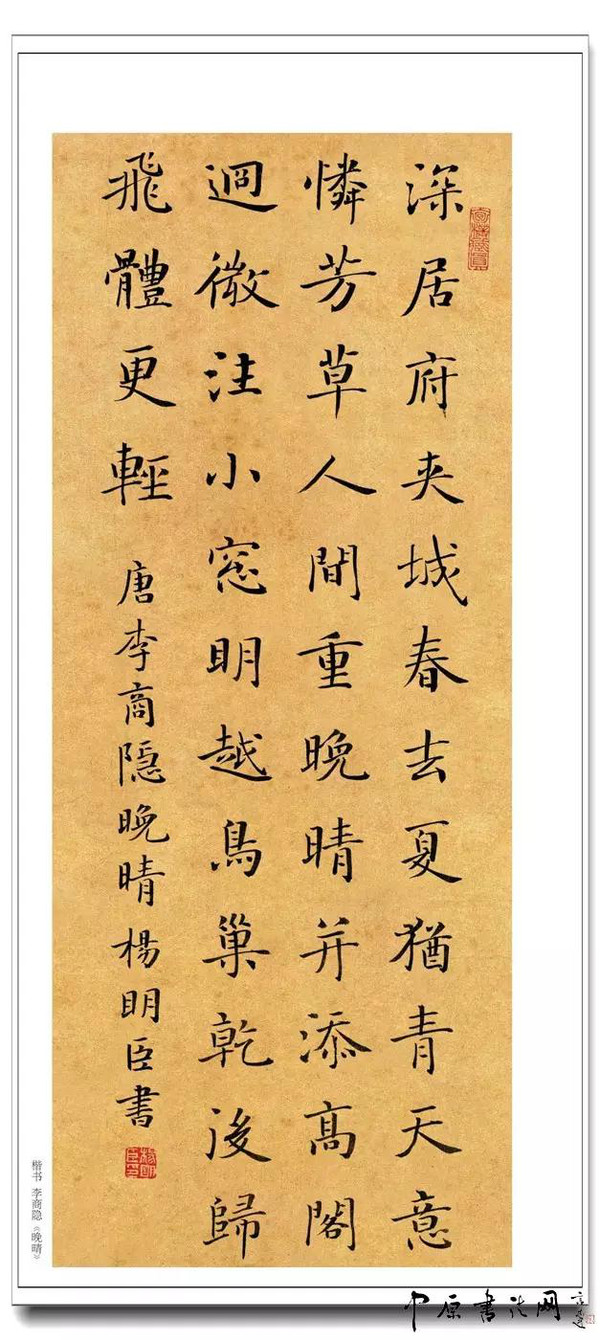 深居府夹城春去夏猶青天意
憐芳草人間重晚晴并添高閣
迥微注小窓明越鳥巢乾後歸
飛體更輕
唐李商隐晚晴楊明臣書
楷书 李商隐《晚晴》
中原书法网